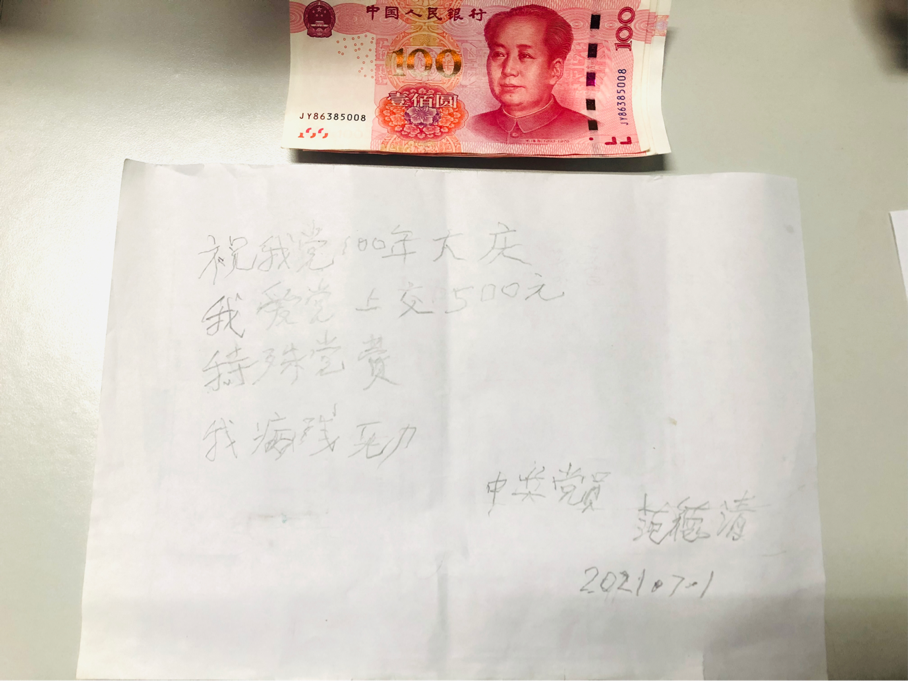 中国人民银行
100
100
壹佰圆
JY86385008
JY86385008
100
祝我党100年大庆
我爱党上交500元
特殊党费
我病残无力
中共党员
范德清
2021.07.1